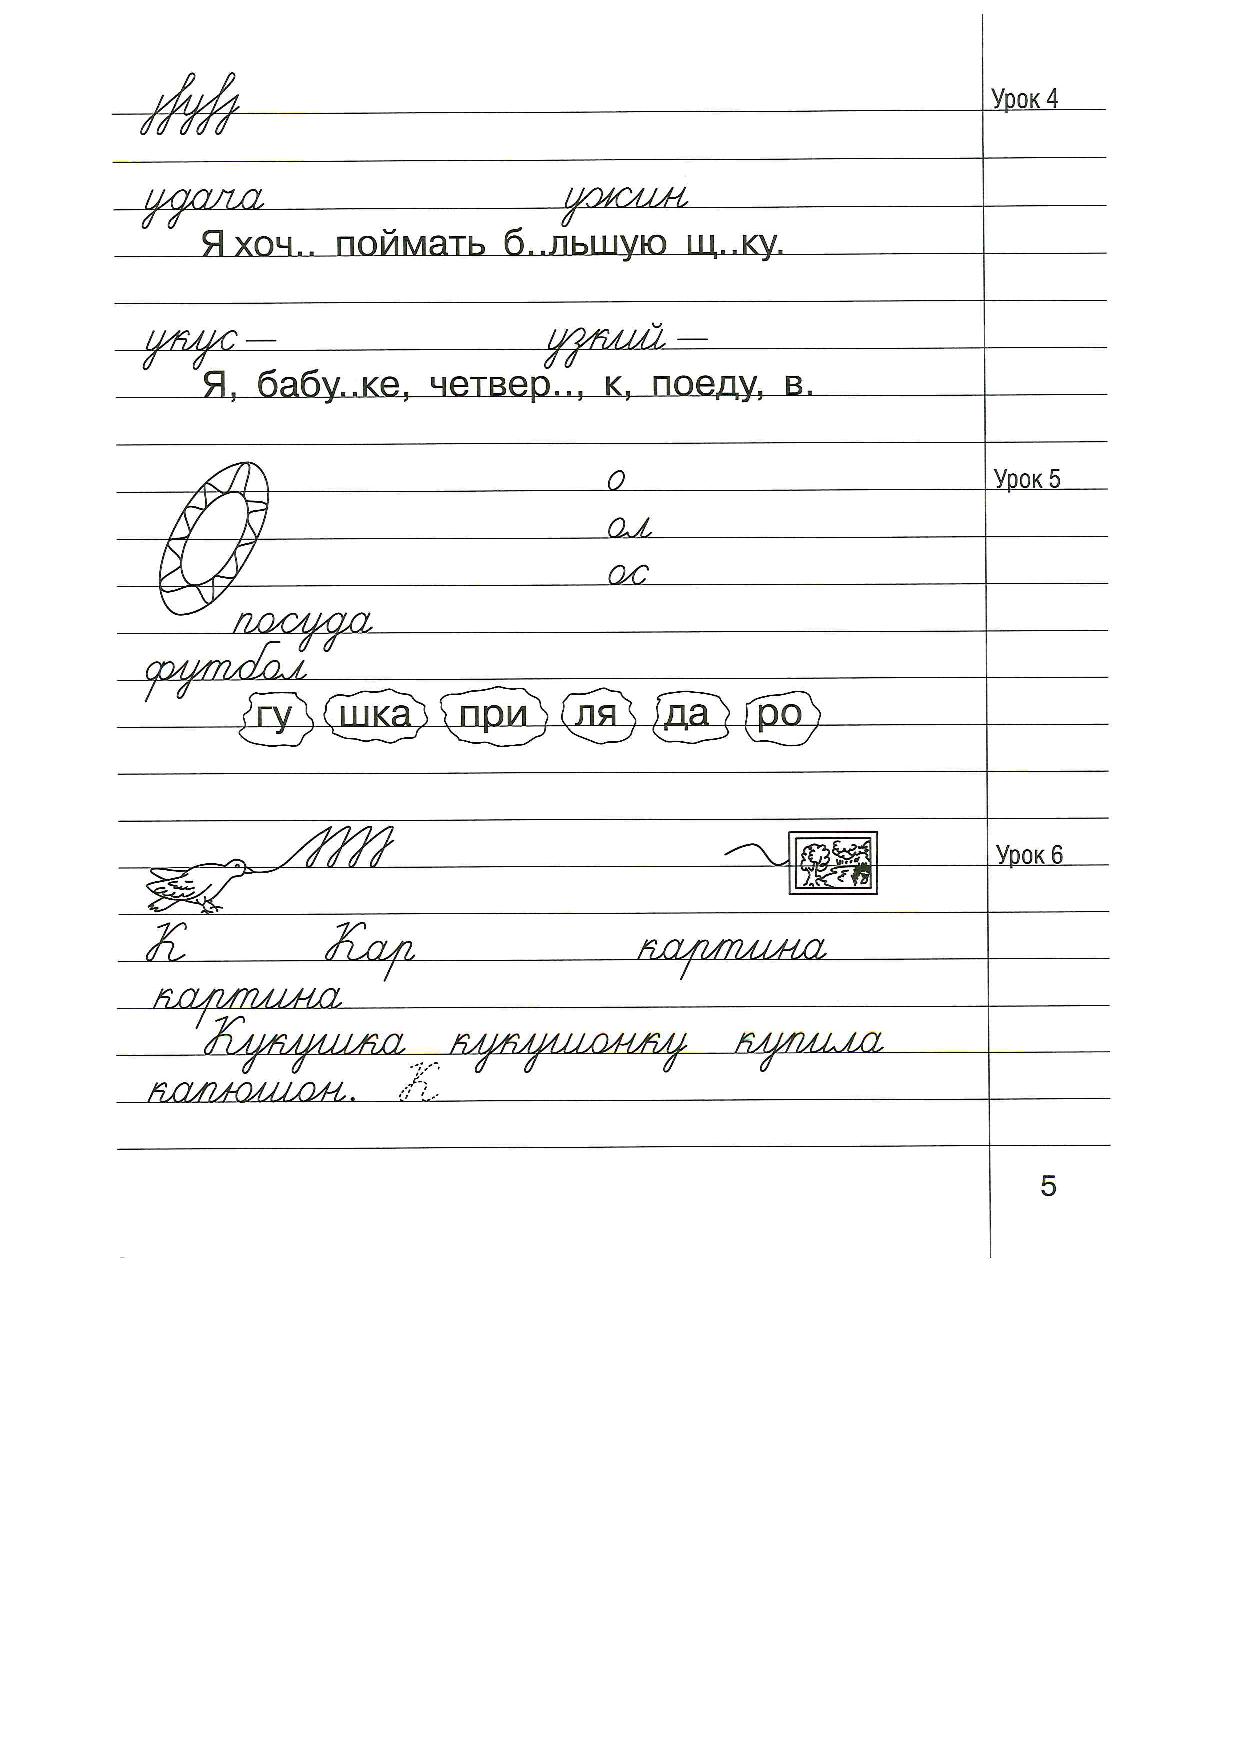 Урок 4
удача ужин
Я хоч.. поймать б..льшую щ..ку.
укус — узкий —
Я, бабу..ке, четвер.., к, поеду, в.
о Урок 5
ол
ос
посуда
футбол
гу шка при ля да ро
Урок 6
К Кар картина
картина
Кукушка кукушонку купила
капюшон. К
5